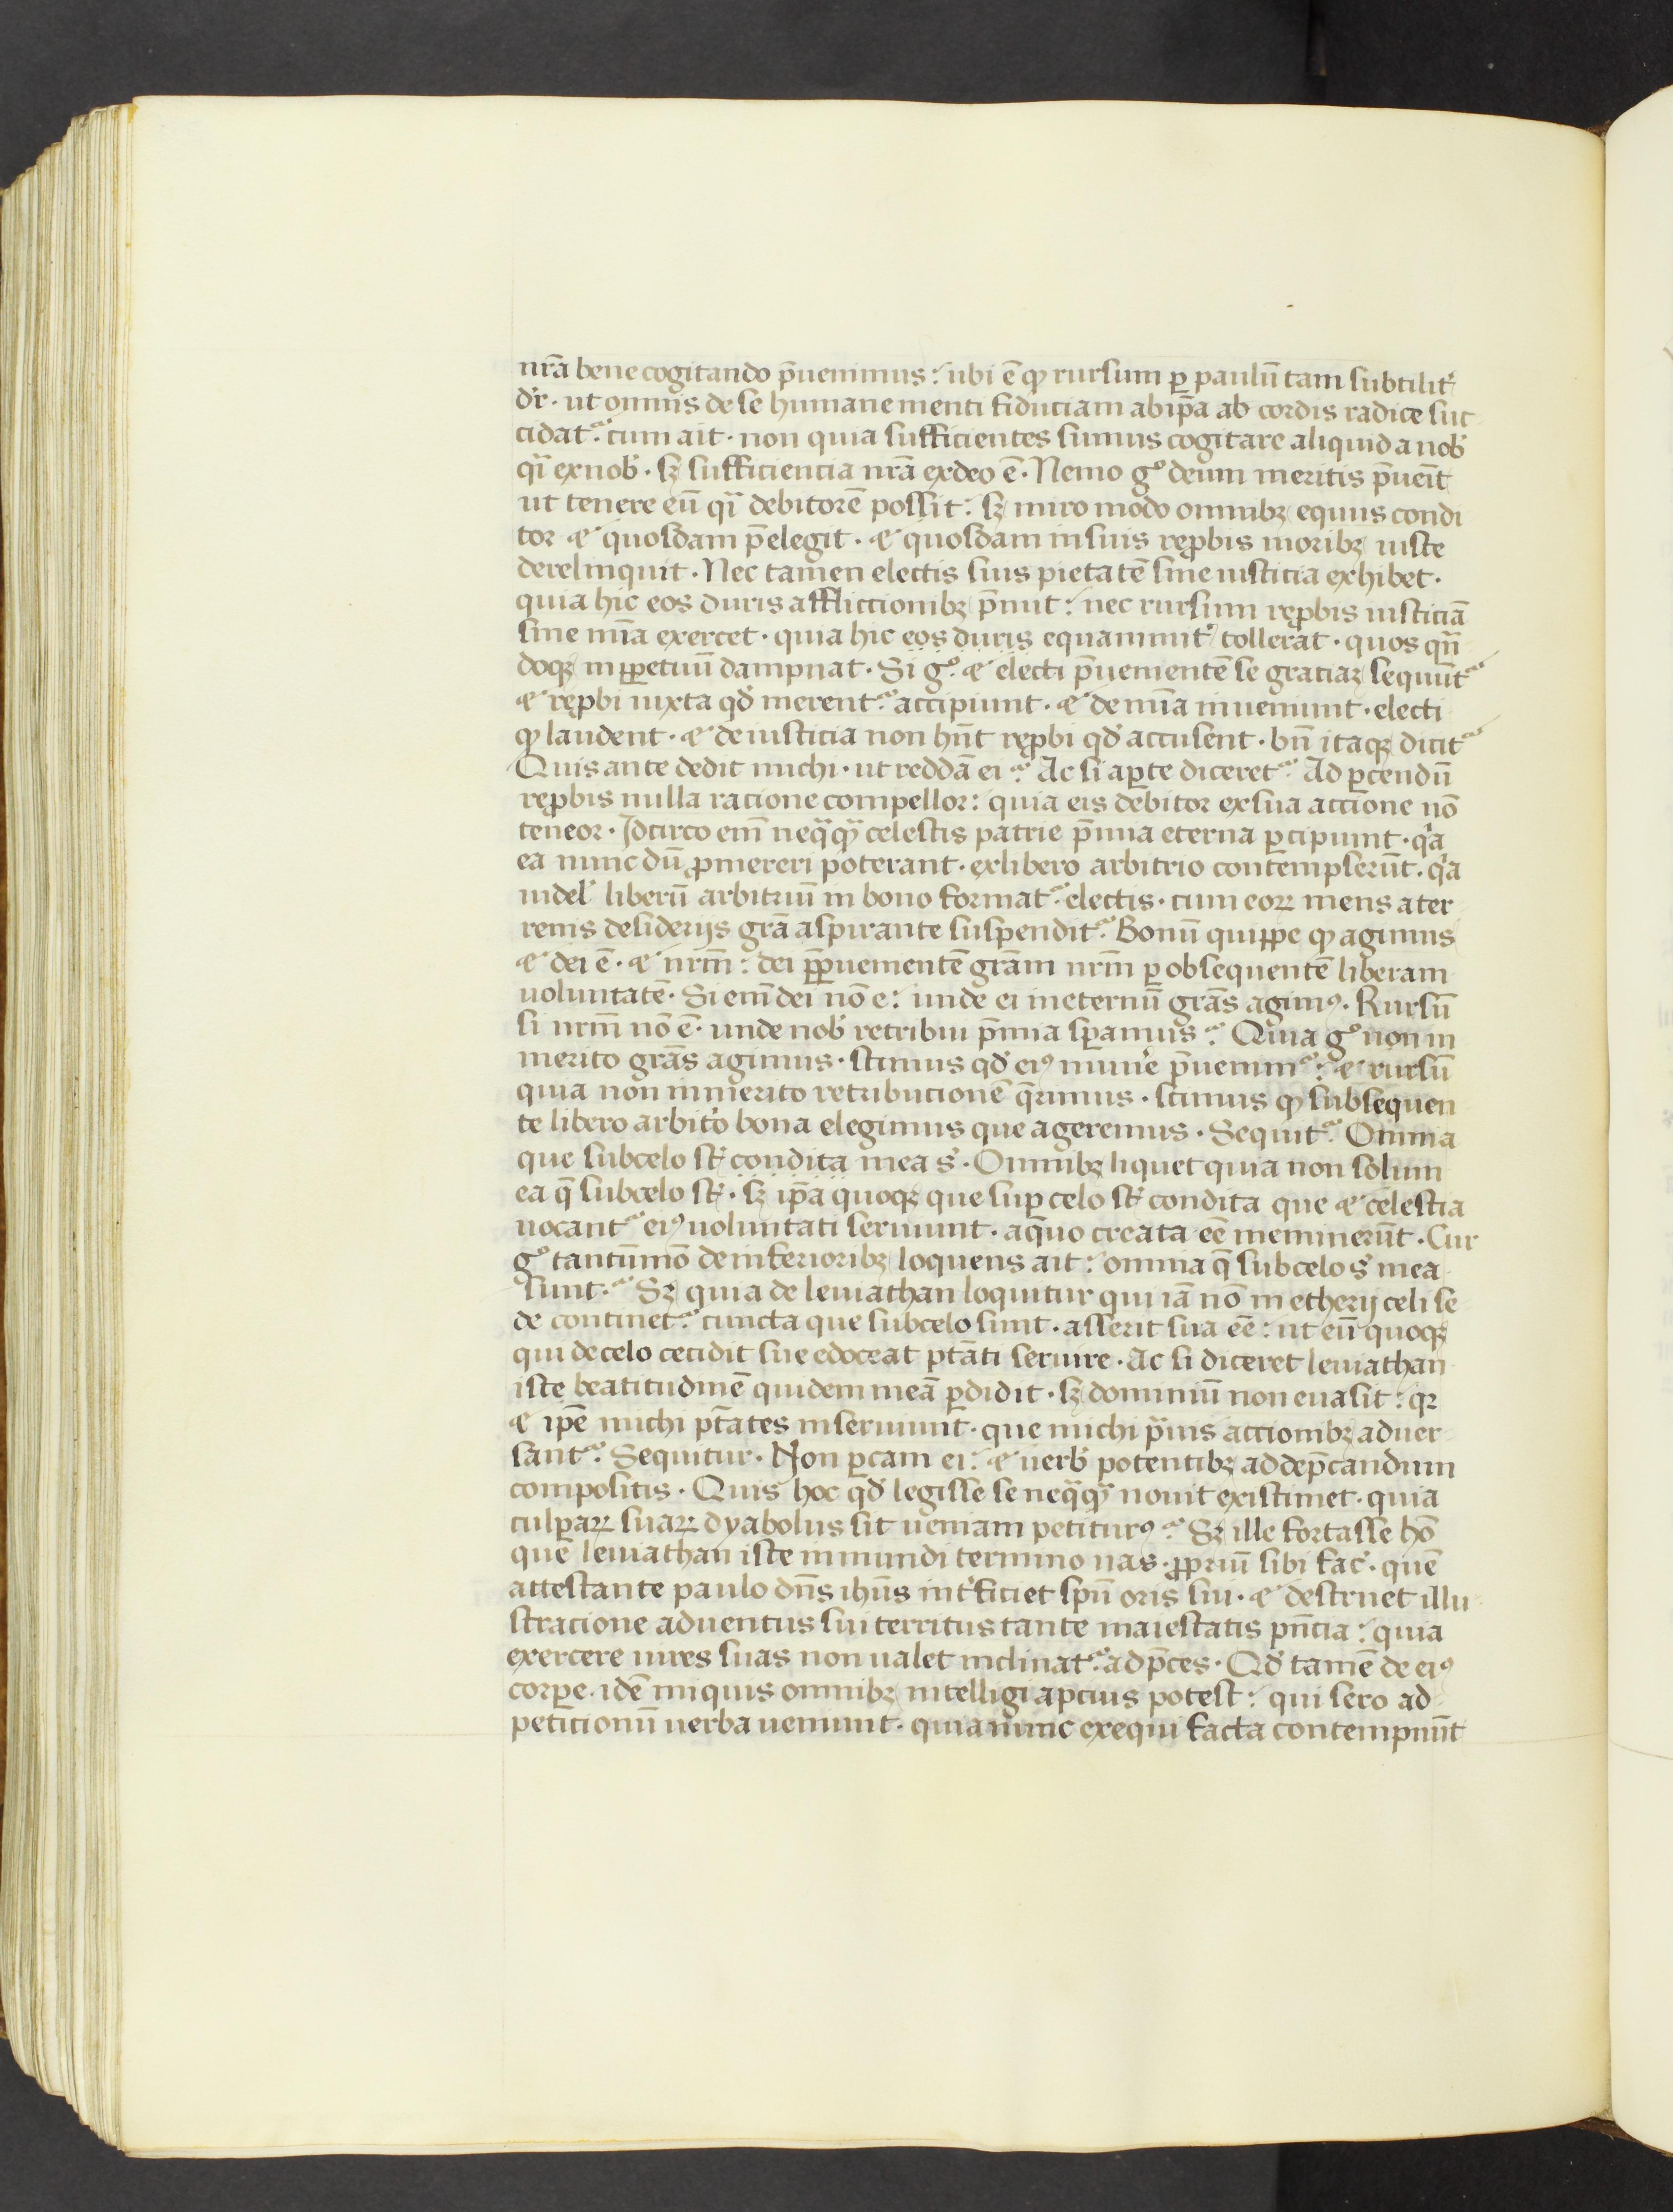 nr̄a bene cogitando p̄uenimus: ubi ē ꝙ rursum ꝑ paulū tam subtilit᷑
dr̄· ut omnis de se humane menti fiduciam ab ip̄a ab cordis radice suc
cidat᷑· cum ait· non quia sufficientes sumus cogitare aliquid a nob᷑
qͣi ex nob᷑· sꝫ sufficiencia nr̄a ex deo ē· Nemo gͦ deum meritis p̄ueīt
ut tenere eū qͣi debitorē possit: sꝫ miro modo omnibꝫ equus condi
tor & quosdam p̄elegit· & quosdam in suis rep̱bis moribꝫ iuste
derelinquit· Nec tamen electis suis pietatē sine iusticia exhibet·
quia hic eos duris affliccionibꝫ p̄mit: nec rursum reꝓbis iusticiā
sine mīa exercet· quia hic eos duris equanimit᷑ tollerat· quos qn̄
doqꝫ in ꝑpetuū dampnat· Si gͦ & electi p̄uenientē se graciaꝫ sequūt᷑
& reꝓbi iuxta qd᷑ merent᷑ accipiunt· & de mīa inueniunt· electi
ꝙ laudent· & de iusticia non hn̄t reꝓbi qd᷑ accusent· bn̄ itaqꝫ dicit᷑
Quis ante dedit michi· ut reddā ei᷑· Ac si aꝑte diceret᷑· Ad ꝑcendū
reꝓbis nulla racione compellor: quia eis debitor ex sua accione nō
teneor· Idcirco em̄ neqͣqͣ celestis patrie p̄mia eterna ꝑcipiunt· qͥa
ea nunc dū ꝓmereri poterant· ex libero arbitrio contempserūt· qͥa
uidel᷑ liberū arbitriū in bono format᷑ electis· cum eoꝝ mens a ter
renis desiderijs grā aspirante suspendit᷑· Bonū quippe ꝙ agimus
& dei ē· & nrm̄: dei ꝑ p̄uenientē grām nrm̄ ꝑ obsequentē liberam
uoluntatē· Si em̄ dei nō e: unde ei in eternū grās agimꝰ· Rursū
si nrm̄ nō ē· unde nob᷑ retribui p̄mia sꝑamus᷑· Quia gͦ non in
merito grās agimus· scimus qd᷑ eiꝰ mun᷑e p̄uenim᷑: & rursū
quia non inmerito retribucionē q̄rimus· scimus ꝙ subsequen
te libero arbit᷑o bona elegimus que ageremus· Sequit᷑· Omnia
que sub celo st᷑ condita mea s᷑· Omnibꝫ liquet quia non solum
ea q̄ sub celo st᷑· sꝫ ip̄a quoqꝫ que suꝑ celo st᷑ condita que & celestia
uocant᷑ eiꝰ uoluntati seruiunt· a quo creata eē meminerūt· Cur
gͦ tantūmō de inferioribꝫ loquens ait: omnia q̄ sub celo s᷑ mea
sunt᷑· Sꝫ quia de leuiathan loquitur qui iā nō in etherij celi se
de continet᷑ cuncta que sub celo sunt· asserit sua eē: ut eū quoqꝫ
qui de celo cecidit sue edoceat ptāti seruire· Ac si diceret leuiathan
iste beatitudinē quidem meā ꝑdidit· sꝫ dominiū non euasit: qꝛ
& ipē michi ptātes inseruiunt· que michi p̄uis accionibꝫ aduer
sant᷑· Sequitur· Non ꝑcam ei: & uerb᷑ potentibꝫ ad dep̄candum
compositis· Quis hoc qd᷑ legisse se neqͣqͣ nouit existimet· quia
culpaꝝ suaꝝ dyabolus sit ueniam petiturꝰ᷑· Sꝫ ille fortasse hō
quē leuiathan iste in mundi termino uas ꝓpriū sibi fac᷑· quē
attestante paulo dn̄s ihūs int᷑ficiet spū oris sui· & destruet illu
stracione aduentus sui territus tante maiestatis pn̄cia: quia
exercere uires suas non ualet inclinat᷑ ad p̄ces· Qd᷑ tamē de eiꝰ
corꝑe· idē iniquis omnibꝫ intelligi apcius potest: qui sero ad
peticionū uerba ueniunt· quia nunc exequi facta contempnūt